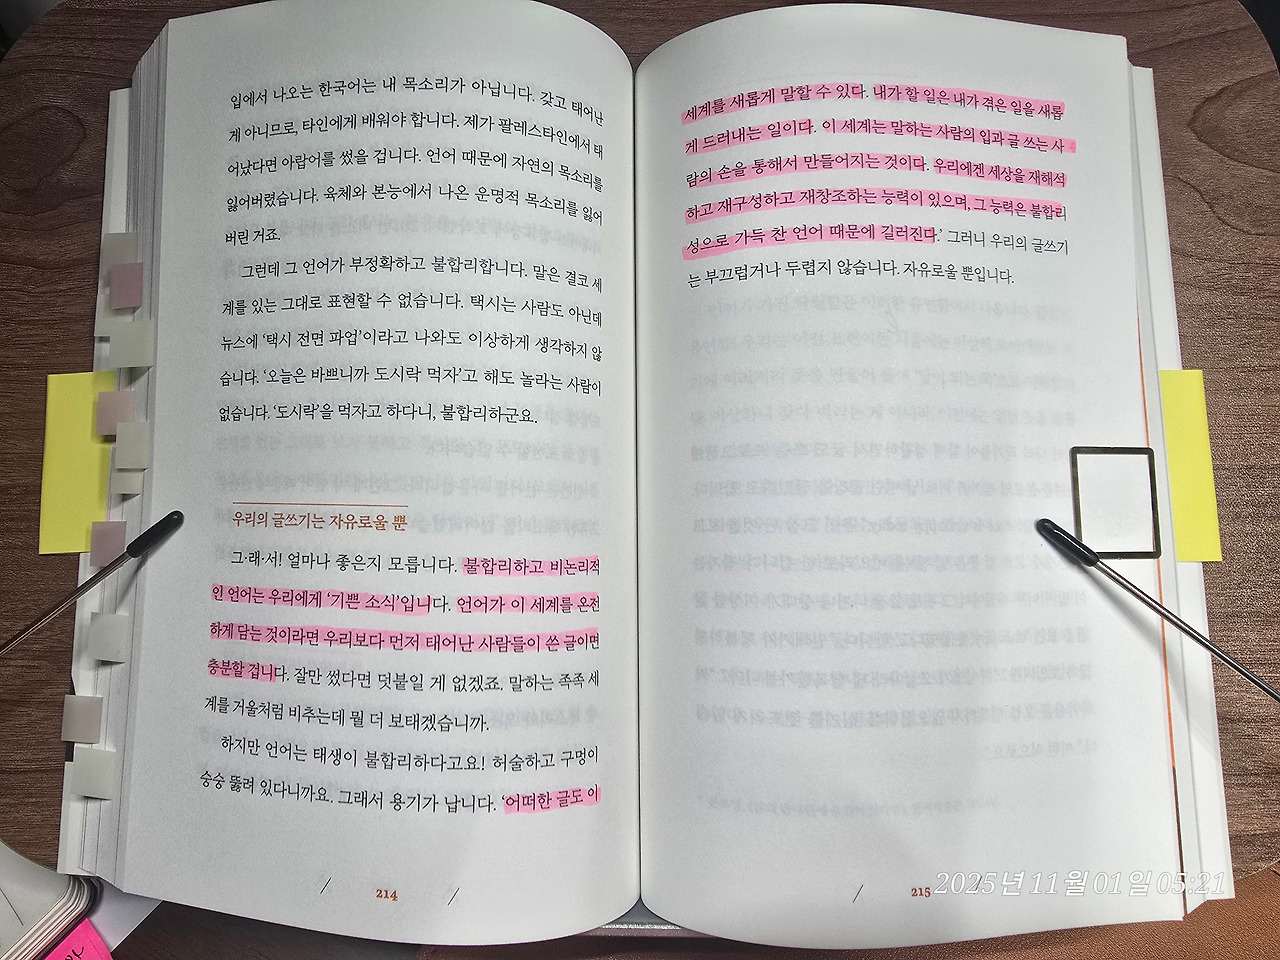 입에서 나오는 한국어는 내 목소리가 아닙니다. 갖고 태어난
게 아니므로, 타인에게 배워야 합니다. 제가 팔레스타인에서 태
어났다면 아랍어를 썼을 겁니다. 언어 때문에 자연의 목소리를
잃어버렸습니다. 육체와 본능에서 나온 운명적 목소리를 잃어
버린 거죠.
그런데 그 언어가 부정확하고 불합리합니다. 말은 결코 세
계를 있는 그대로 표현할 수 없습니다. 택시는 사람도 아닌데
뉴스에 '택시 전면 파업'이라고 나와도 이상하게 생각하지 않
습니다. '오늘은 바쁘니까 도시락 먹자'고 해도 놀라는 사람이
없습니다. '도시락'을 먹자고 하다니, 불합리하군요.
우리의 글쓰기는 자유로울 뿐
그·래·서! 얼마나 좋은지 모릅니다. 불합리하고 비논리적
인 언어는 우리에게 '기쁜 소식'입니다. 언어가 이 세계를 온전
하게 담는 것이라면 우리보다 먼저 태어난 사람들이 쓴 글이면
충분할 겁니다. 잘만 썼다면 덧붙일 게 없겠죠. 말하는 족족 세
계를 거울처럼 비추는데 뭘 더 보태겠습니까.
하지만 언어는 태생이 불합리하다고요! 허술하고 구멍이
숭숭 뚫려 있다니까요. 그래서 용기가 납니다. '어떠한 글도 이
214
세계를 새롭게 말할 수 있다. 내가 할 일은 내가 겪은 일을 새롭
게 드러내는 일이다. 이 세계는 말하는 사람의 입과 글 쓰는 사
람의 손을 통해서 만들어지는 것이다. 우리에겐 세상을 재해석
하고 재구성하고 재창조하는 능력이 있으며, 그 능력은 불합리
성으로 가득 찬 언어 때문에 길러진다.' 그러니 우리의 글쓰기
는 부끄럽거나 두렵지 않습니다. 자유로울 뿐입니다.
215
2025년 11월 01일 05:21